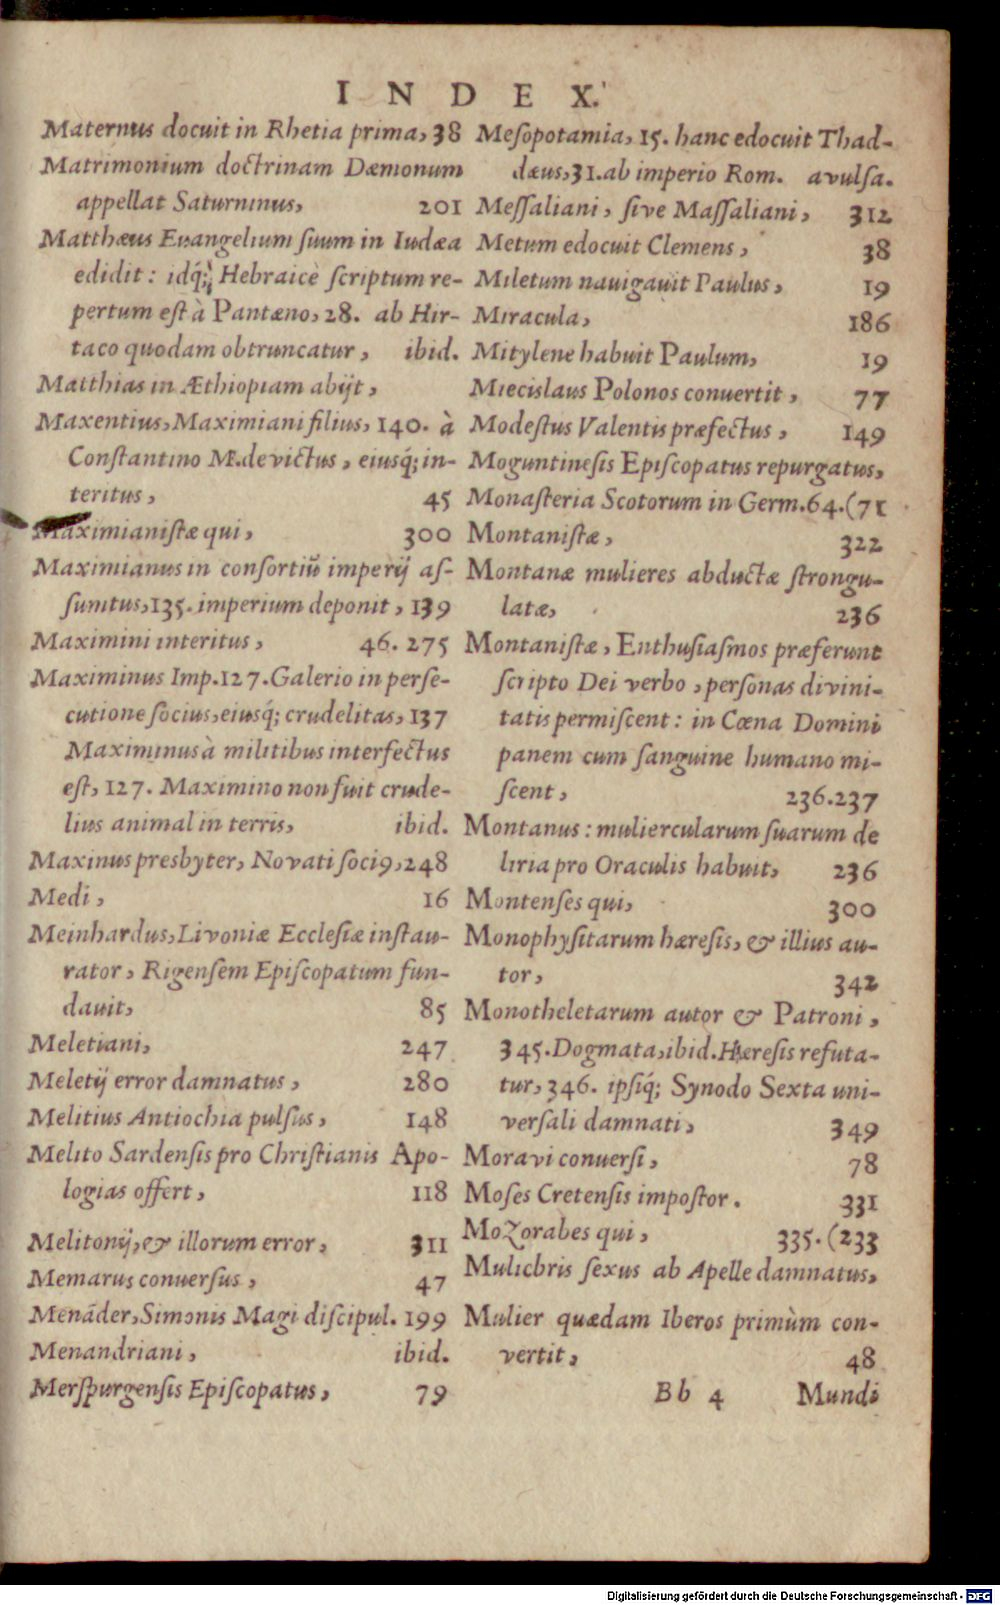 INDEX.
Maternus docuit in Rhetia prima, 38
Matrimonium doctrinam Dæmonum
appellat Saturninus, 201
Matthæus Euangelium ſuum in Iudæa
edidit: idq́; Hebraicè ſcriptum re-
pertum eſt à Pantæno, 28. ab Hir-
taco quodam obtruncatur, ibid.
Matthias in Æthiopiam abijt,
Maxentius, Maximiani filius, 140. à
Conſtantino M. devictus, eiusq́; in-
teritus, 45
Maximianiſtæ qui, 300
Maximianus in conſortiū imperij aſ-
ſumtus, 135. imperium deponit, 139
Maximini interitus, 46. 275
Maximinus Imp. 127. Galerio in perſe-
cutione ſocius, eiusq́; crudelitas, 137
Maximinus à militibus interfectus
eſt, 127. Maximino non fuit crude-
lius animal in terris, ibid.
Maxinus presbyter, Novati ſociꝰ, 248
Medi, 16
Meinhardus, Livoniæ Eccleſiæ inſtau-
rator, Rigenſem Epiſcopatum fun-
dauit, 85
Meletiani, 247
Meletij error damnatus, 280
Melitius Antiochia pulſus, 148
Melito Sardenſis pro Chriſtianis Apo-
logias offert, 118
Melitonij, & illorum error, 311
Memarus converſus, 47
Menāder, Simonis Magi diſcipul. 199
Menandriani, ibid.
Merſpurgenſis Epiſcopatus, 79
Meſopotamia, 15. hanc edocuit Thad-
dæus, 31. ab imperio Rom. avulſa.
Meſſaliani, ſive Maſſaliani, 312
Metum edocuit Clemens, 38
Miletum nauigauit Paulus, 19
Miracula, 186
Mitylene habuit Paulum, 19
Miecislaus Polonos conuertit, 77
Modeſtus Valentis præfectus, 149
Moguntinēſis Epiſcopatus repurgatus,
Monaſteria Scotorum in Germ. 64. (71
Montaniſtæ, 322
Montanæ mulieres abductæ ſtrongu-
latæ, 236
Montaniſtæ, Enthuſiaſmos præferunt
ſcripto Dei verbo, perſonas divini-
tatis permiſcent: in Cœna Domini
panem cum ſanguine humano mi-
ſcent, 236. 237
Montanus: muliercularum ſuarum de
liria pro Oraculis habuit, 236
Montenſes qui, 300
Monophyſitarum hæreſis, & illius au-
tor, 342
Monotheletarum autor & Patroni,
345. Dogmata, ibid. Hæreſis refuta-
tur, 346. ipſiq́; Synodo Sexta uni-
verſali damnati, 349
Moravi converſi, 78
Moſes Cretenſis impoſtor. 331
MoZorabes qui, 335. (233
Mulicbris ſexus ab Apelle damnatus,
Mulier quædam Iberos primùm con-
vertit, 48
Bb 4 Mundi
Digitalisierung gefördert durch die Deutsche Forschungsgemeinschaft - DFG